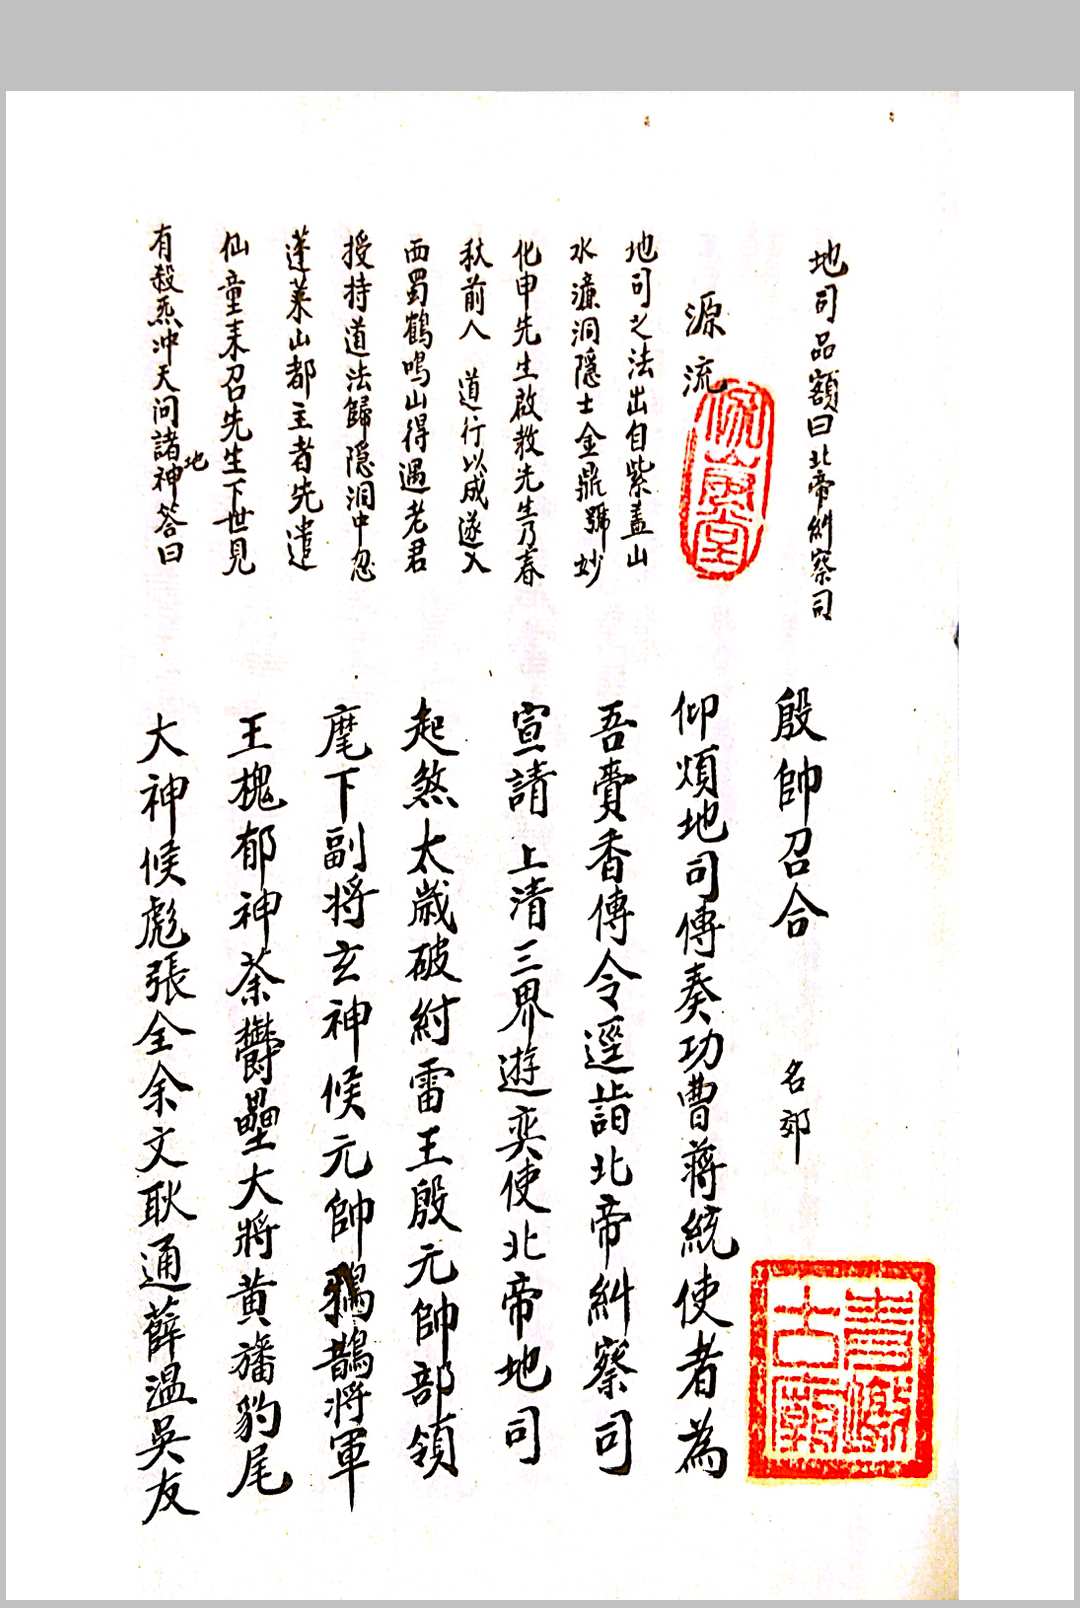 地司品額曰北帝糾察司
源流
地司之法出自紫盖山
水濂洞隱士金鼎號妙
化申先生啟教先生乃春
秋前人 道行以成遂入
西蜀鶴鳴山得遇老君
授持道法歸隐洞中忽
蓬萊山都主者先遣
仙童来召先生下世見
有殺炁冲天问諸地神答曰
殷帥召合 名郊
仰煩地司傳奏功曹蒋統使者為
吾賷香傳令逕詣北帝糾察司
宣請上清三界遊奕使北帝地司
起煞太歲破紂雷王殷元帥部領
麾下副将玄神候元帥鴉鵲将軍
王槐郁神荼欝壘大將黄旛豹尾
大神候彪張全余文耿通薛温吳友